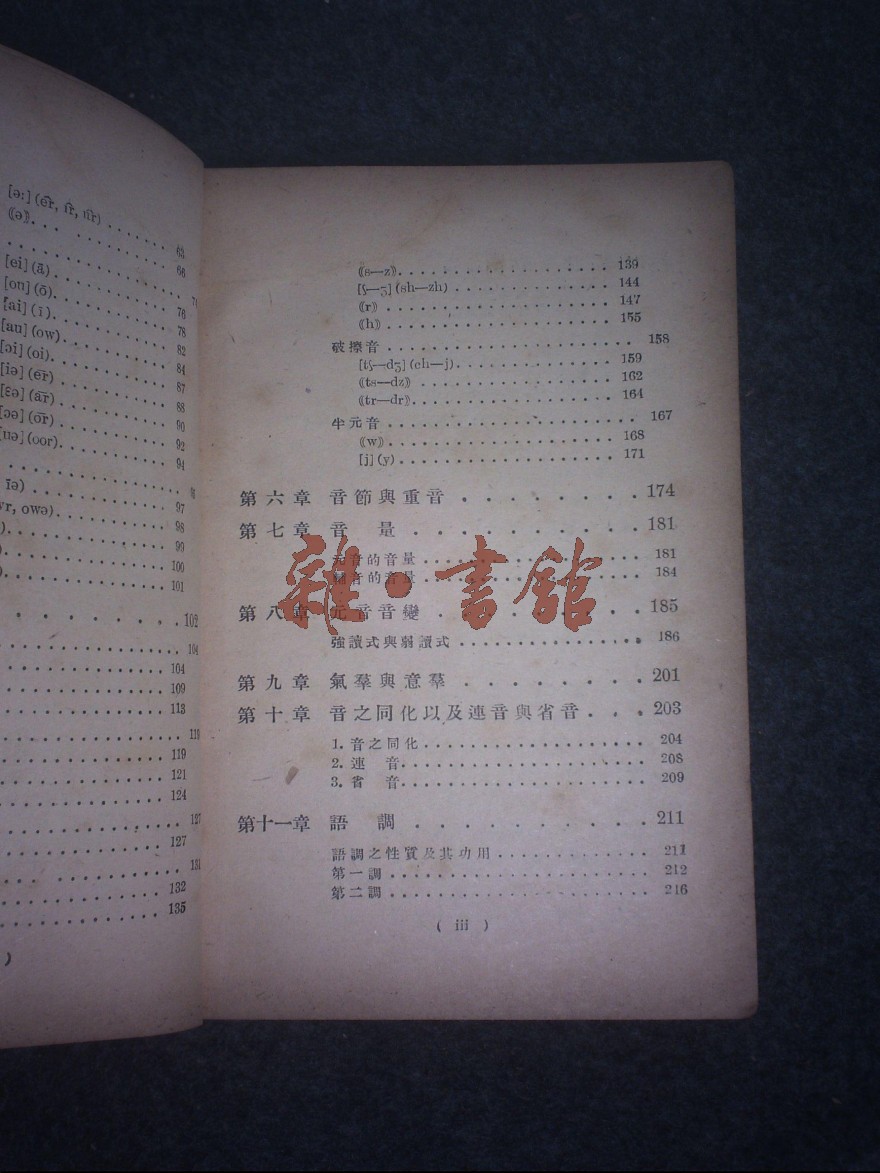 [ə:] (êr, îr, ûr) . . . . . . . 63
⟪ə⟫. . . . . . . . . . . . 66
[ei] (ā) . . . . . . . . . . 76
[ou] (ō). . . . . . . . . . 78
[ai] (ī) . . . . . . . . . . 82
[au] (ow) . . . . . . . . . 84
[ɔi] (oi). . . . . . . . . . 87
[iə] (ēr) . . . . . . . . . . 88
[ɛə] (âr) . . . . . . . . . . 90
[ɔə] (ōr) . . . . . . . . . . 92
[uə] (oor). . . . . . . . . . 94
īə) . . . . . . . . . . 97
wr, owə) . . . . . . . . . . 98
99
100
101
102
104
109
113
119
119
121
124
127
127
132
135
⟪s—z⟫. . . . . . . . . . 139
[ʃ—ʒ] (sh—zh) . . . . . . . . . . 144
⟪r⟫ . . . . . . . . . . 147
⟪h⟫ . . . . . . . . . . 155
破擦音 . . . . . . . . . . 158
[tʃ—dʒ] (ch—j). . . . . . . . . . 159
⟪ts—dz⟫ . . . . . . . . . . 162
⟪tr—dr⟫ . . . . . . . . . . 164
半元音 . . . . . . . . . . 167
⟪w⟫ . . . . . . . . . . 168
[j] (y) . . . . . . . . . . 171
第六章 音節與重音 . . . . . . . 174
第七章 音 量 . . . . . . . . . 181
元音的音量 . . . . . . . . . . 181
輔音的音量 . . . . . . . . . . 184
第八章 元音音變 . . . . . . . . 185
強讀式與弱讀式 . . . . . . . . . . 186
第九章 氣羣與意羣 . . . . . . . . 201
第十章 音之同化以及連音與省音 . . . 203
1. 音之同化 . . . . . . . . . . 204
2. 連 音. . . . . . . . . . 208
3. 省 音 . . . . . . . . . . 209
第十一章 語 調 . . . . . . . . . 211
語調之性質及其功用 . . . . . . . . . . 211
第一調 . . . . . . . . . . 212
第二調 . . . . . . . . . . 216
( iii )
雜·書館